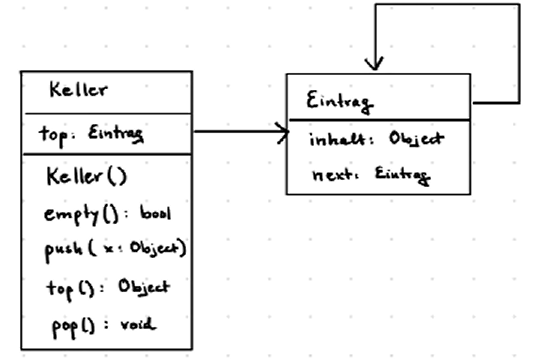 Keller
top: Eintrag
Keller()
empty(): bool
push( x: Object)
top(): Object
pop() : void
Eintrag
inhalt: Object
next: Eintrag